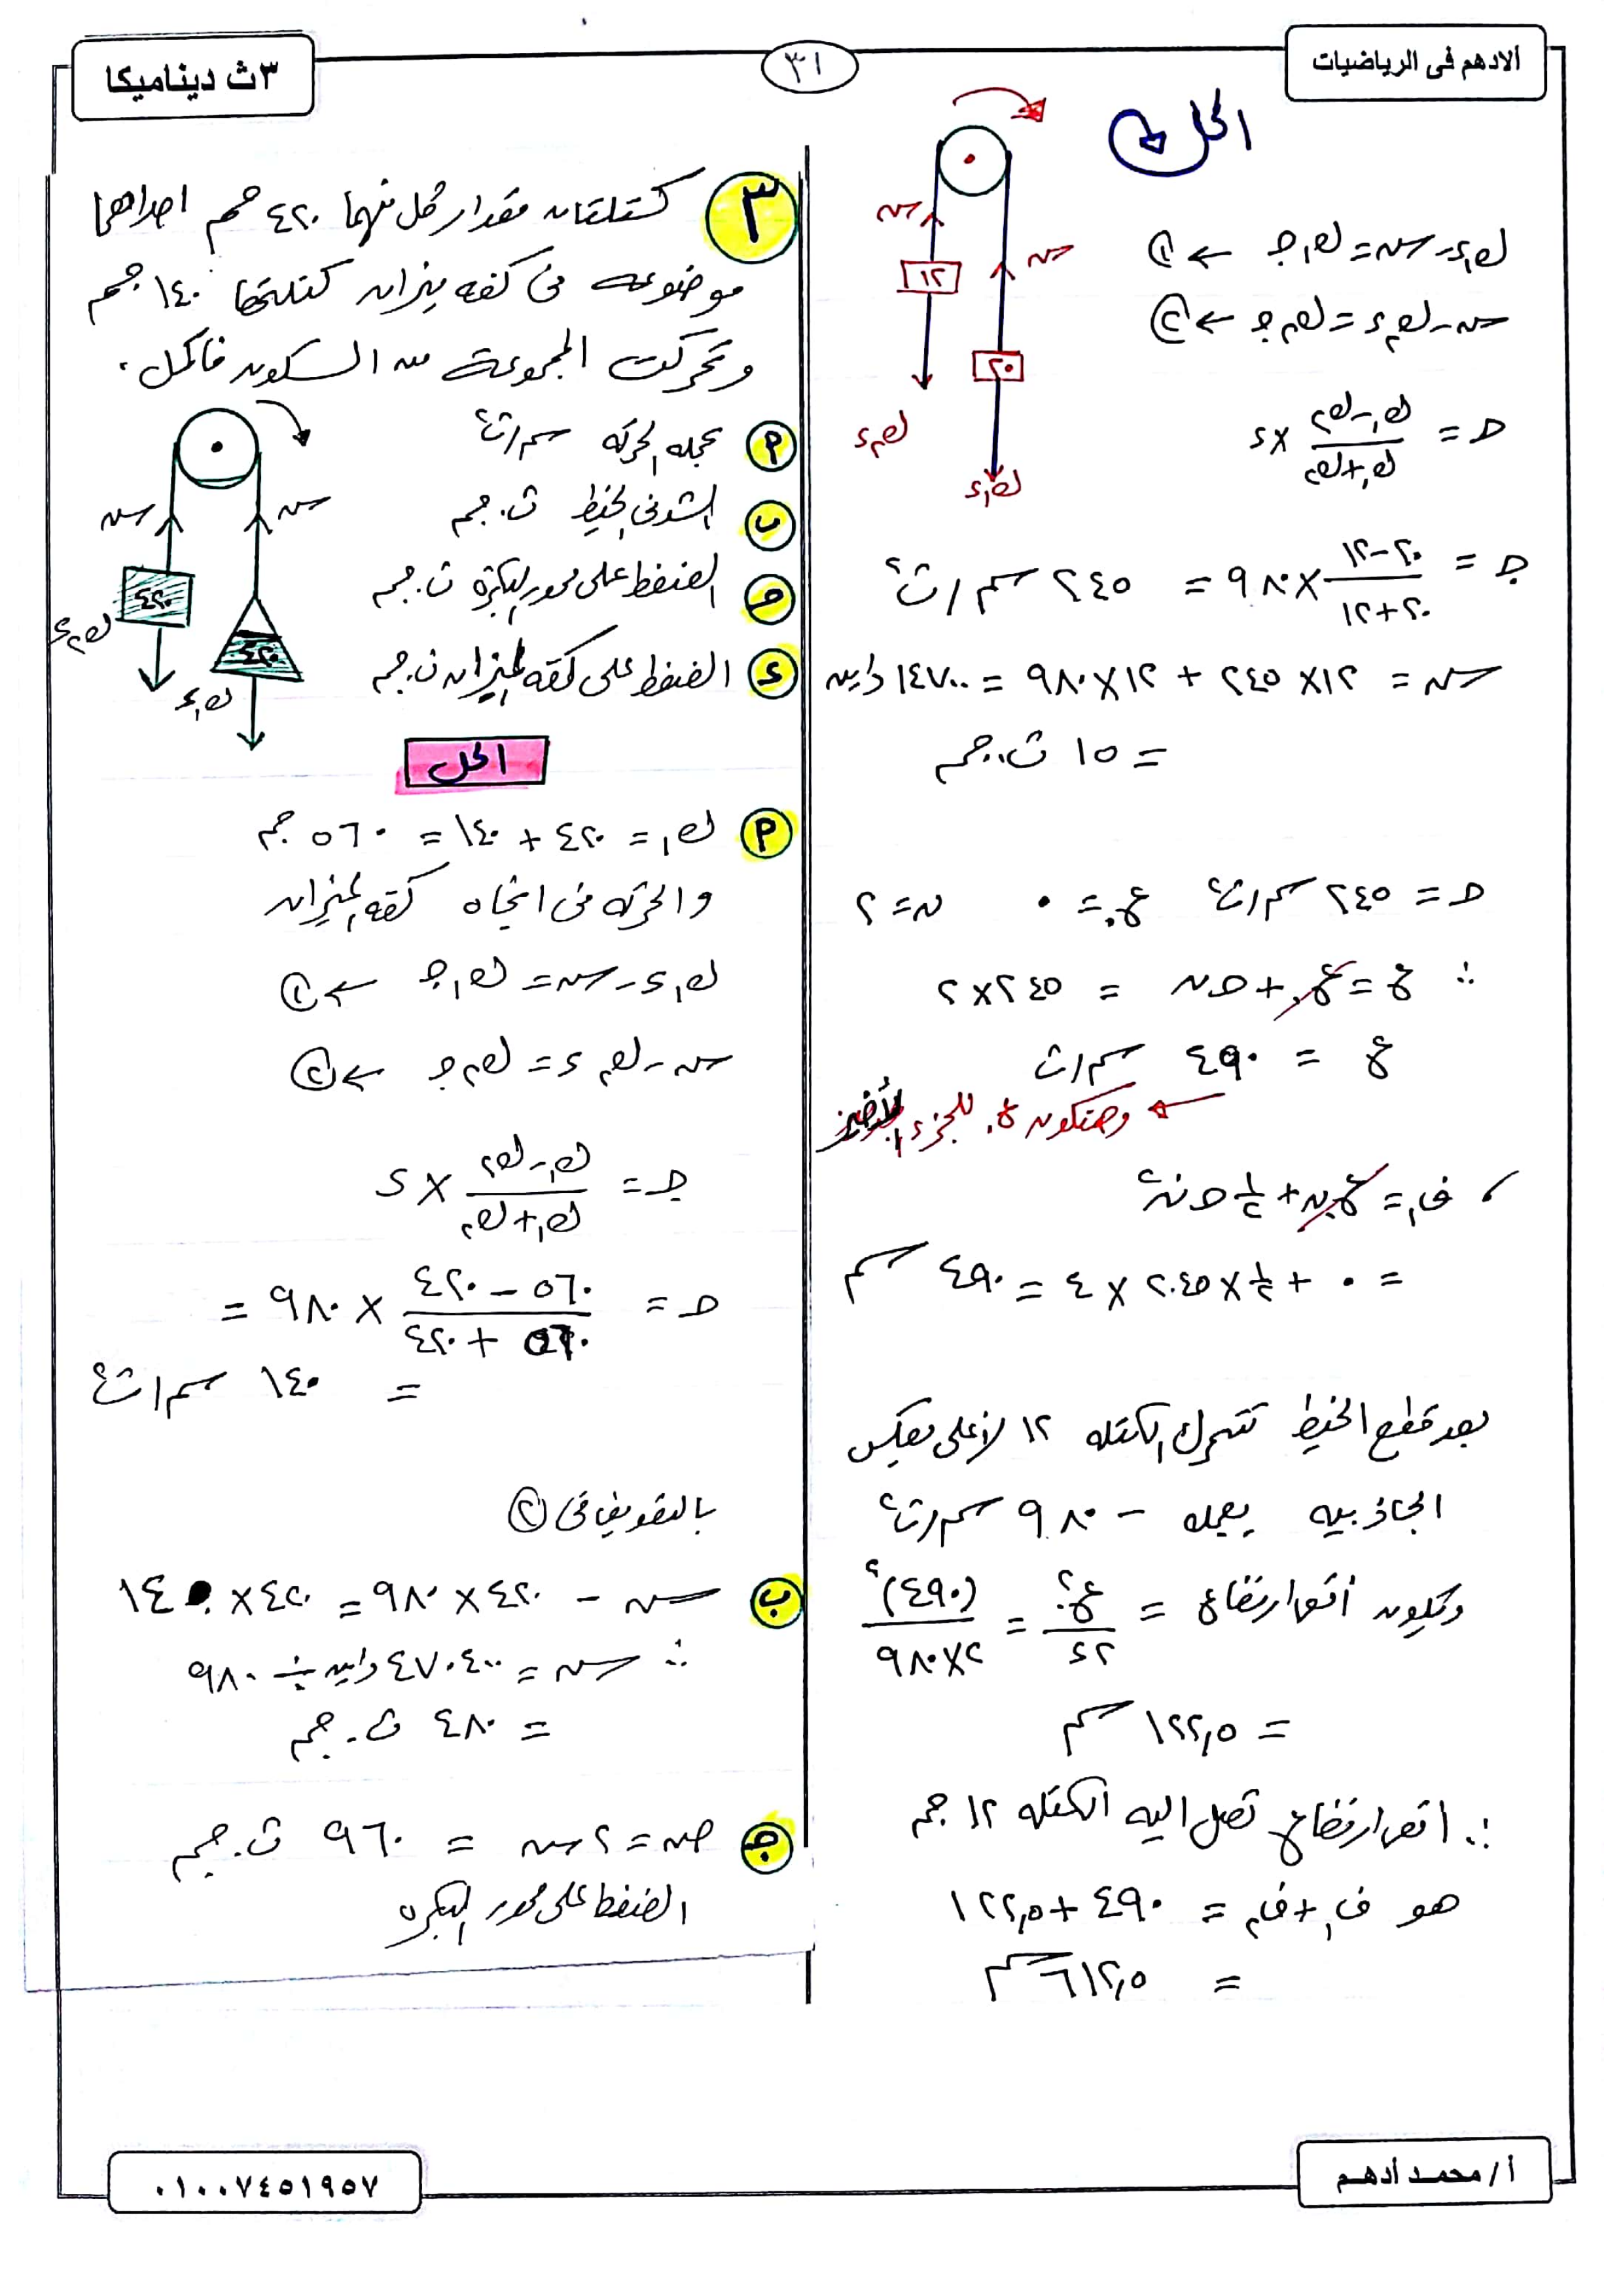 الادهم فى الرياضيات
٣١
٣ث ديناميكا
الحل
١٢
٢٠
ك١ء - سہ = ك١ جـ ← ①
سہ - ك٢ء = ك٢ جـ ← ②
حـ = (ك١ - ك٢)/(ك١ + ك٢) × ء
جـ = (٢٠ - ١٢)/(٢٠ + ١٢) × ٩٨٠ = ٢٤٥ سم/ث٢
سہ = ١٢ × ٢٤٥ + ١٢ × ٩٨٠ = ١٤٧٠٠ داين
= ١٥ ث.جم
حـ = ٢٤٥ سم/ث٢ ع٠ = ٠ ن = ٢
∴ ع = ع٠ + حـ ن = ٢٤٥ × ٢
ع = ٤٩٠ سم/ث
← وهتكون ع٠ للجزء الأخير
، ف١ = ع٠ن + ١/٢ حـ ن٢
= ٠ + ١/٢ × ٢٤٥ × ٤ = ٤٩٠ سم
بعد قطع الخيط تتحرك الكتله ١٢ لأعلى بعكس
الجاذبيه بعجله - ٩٨٠ سم/ث٢
ويكون أقصى ارتفاع = ع٠٢/٢ء = (٤٩٠)٢/(٢×٩٨٠)
= ١٢٢,٥ سم
∴ اقصى ارتفاع تصل اليه الكتله ١٢ جم
هو ف١ + ف٢ = ٤٩٠ + ١٢٢,٥
= ٦١٢,٥ سم
٣ كتلتان مقدار كل منهما ٤٢٠ جم احداهما
موضوعه فى كفه ميزان كتلتها ١٤٠ جم
وتحركت المجموعة من السكون فاكمل.
أ عجله الحركه سم/ث٢
ب الشد فى الخيط ث.جم
حـ الضغط على محور البكره ث.جم
ء الضغط على كفه الميزان ث.جم
سہ
سہ
٤٢٠
٤٢٠
ك٢ء
ك١ء
الحل
أ ك١ = ٤٢٠ + ١٤٠ = ٥٦٠ جم
والحركه فى اتجاه كفه الميزان
ك١ء - سہ = ك١ جـ ← ①
سہ - ك٢ء = ك٢ جـ ← ②
جـ = (ك١ - ك٢)/(ك١ + ك٢) × ء
حـ = (٥٦٠ - ٤٢٠)/(٥٦٠ + ٤٢٠) × ٩٨٠ =
= ١٤٠ سم/ث٢
بالتعويض فى ②
ب سہ - ٤٢٠ × ٩٨٠ = ٤٢٠ × ١٤٠
∴ سہ = ٤٧٠٤٠٠ داين ÷ ٩٨٠
= ٤٨٠ ث.جم
جـ ضہ = ٢ سہ = ٩٦٠ ث.جم
الضغط على محور البكره
أ / محمـد أدهـم
٠١٠٠٧٤٥١٩٥٧